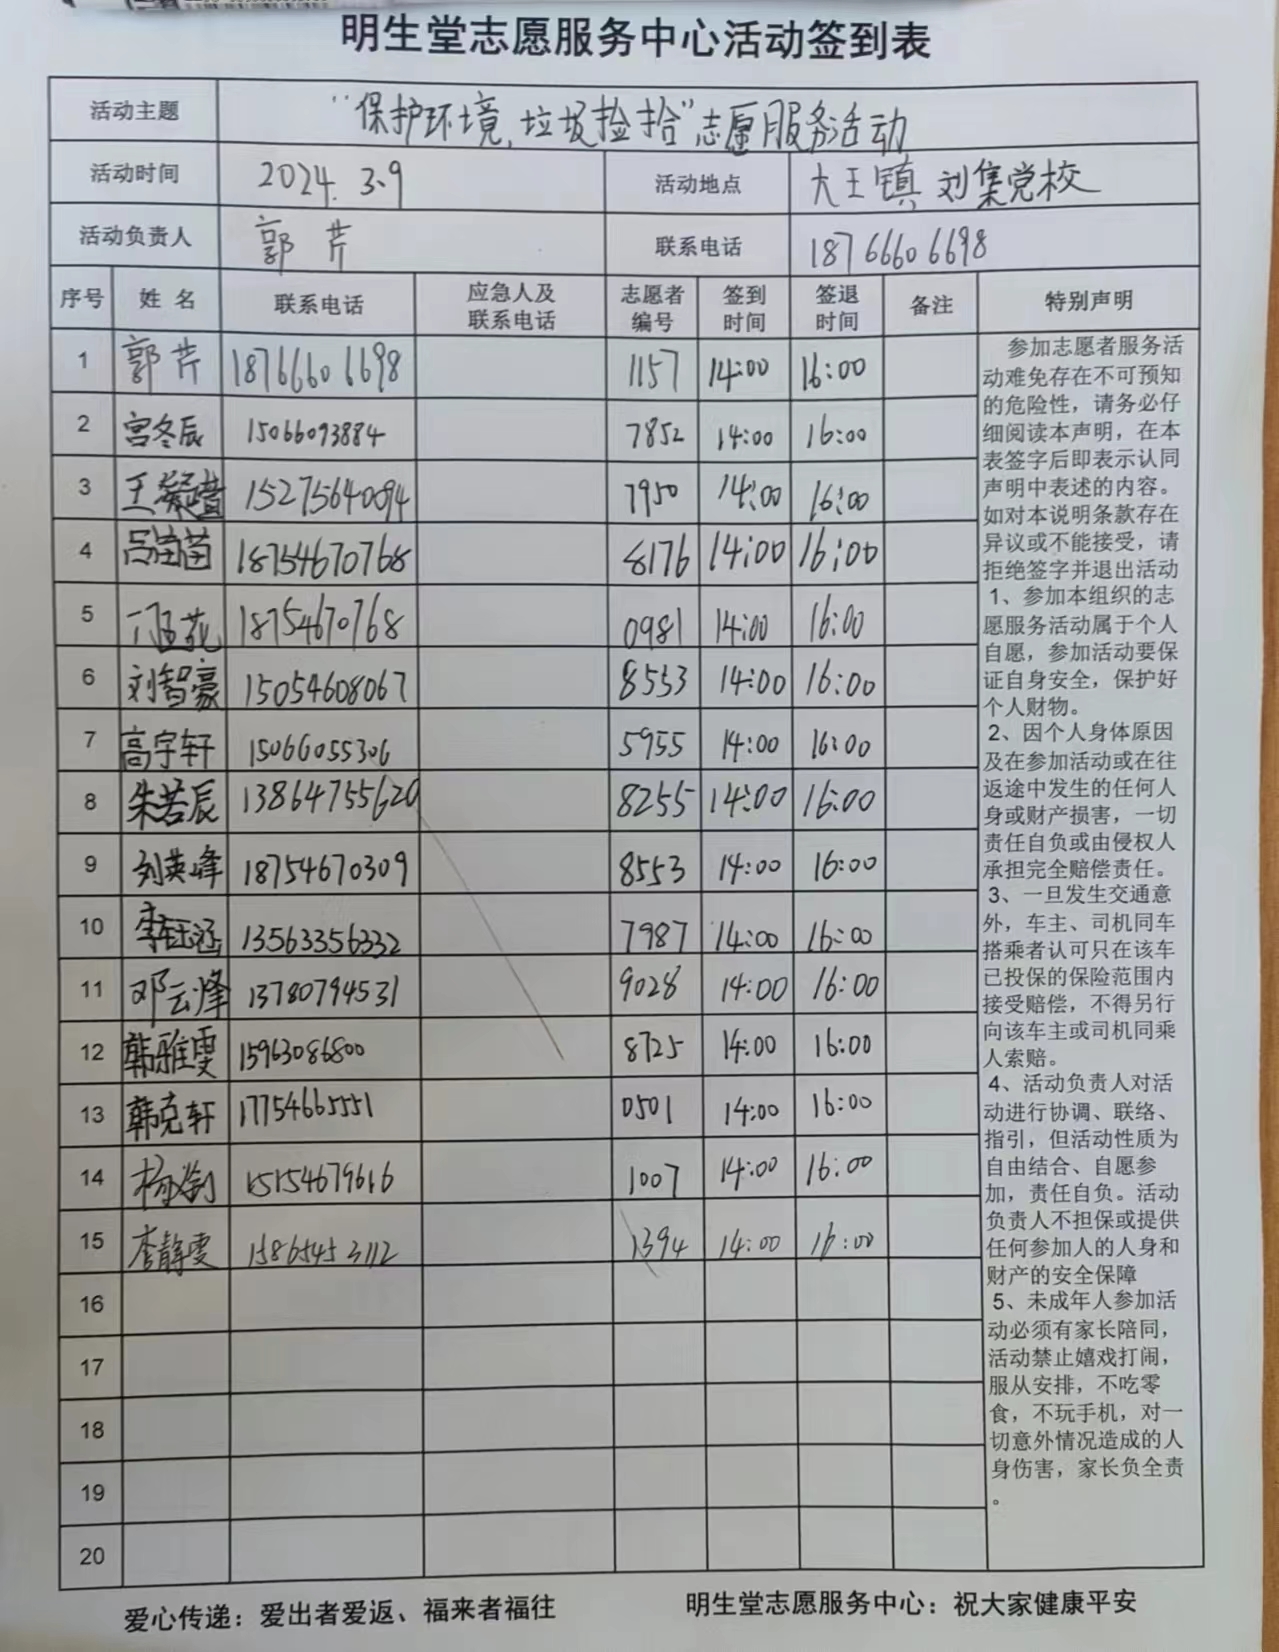 明生堂志愿服务中心活动签到表
活动主题 “保护环境,垃圾捡拾”志愿服务活动
活动时间 2024.3.9 活动地点 大王镇 刘集党校
活动负责人 郭芹 联系电话 18766606698
序号 姓名 联系电话 应急人及联系电话 志愿者编号 签到时间 签退时间 备注 特别声明
1 郭芹 18766606698 1157 14:00 16:00
2 宫冬辰 15066093884 7852 14:00 16:00
3 王 15275640094 7950 14:00 16:00
4 吕苗苗 18754670768 8176 14:00 16:00
5 18754670768 0981 14:00 16:00
6 刘智豪 15054608067 8553 14:00 16:00
7 高宇轩 15066055306 5955 14:00 16:00
8 朱若辰 13864755620 8255 14:00 16:00
9 刘英峰 18754670309 8553 14:00 16:00
10 李钰涵 13563356332 7987 14:00 16:00
11 邓云烽 13780794531 9028 14:00 16:00
12 韩雅雯 15963086800 8725 14:00 16:00
13 韩克轩 17754665551 0501 14:00 16:00
14 杨 15154679616 1007 14:00 16:00
15 李静雯 15865453112 1394 14:00 16:00
16
17
18
19
20
参加志愿者服务活
动难免存在不可预知
的危险性，请务必仔
细阅读本声明，在本
表签字后即表示认同
声明中表述的内容。
如对本说明条款存在
异议或不能接受，请
拒绝签字并退出活动
1、参加本组织的志
愿服务活动属于个人
自愿，参加活动要保
证自身安全，保护好
个人财物。
2、因个人身体原因
及在参加活动或在往
返途中发生的任何人
身或财产损害，一切
责任自负或由侵权人
承担完全赔偿责任。
3、一旦发生交通意
外，车主、司机同车
搭乘者认可只在该车
已投保的保险范围内
接受赔偿，不得另行
向该车主或司机同乘
人索赔。
4、活动负责人对活
动进行协调、联络、
指引，但活动性质为
自由结合、自愿参
加，责任自负。活动
负责人不担保或提供
任何参加人的人身和
财产的安全保障
5、未成年人参加活
动必须有家长陪同，
活动禁止嬉戏打闹，
服从安排，不吃零
食，不玩手机，对一
切意外情况造成的人
身伤害，家长负全责
。
爱心传递：爱出者爱返、福来者福往 明生堂志愿服务中心：祝大家健康平安